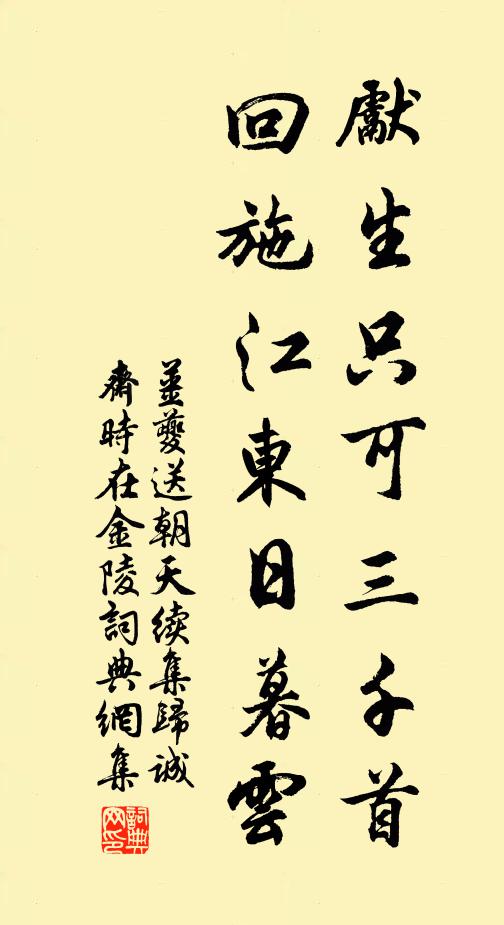 獻生只可三千首
回施江東日暮雲
姜夔送朝天续集歸誠
齋時在金陵詞典網集
詞典网印